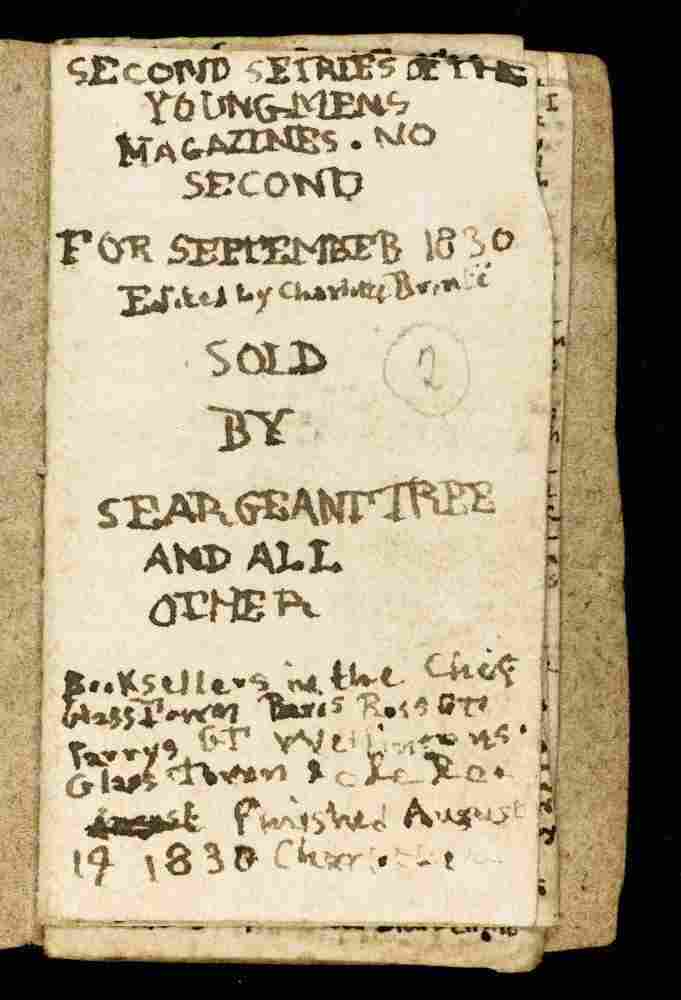 SECOND SEIRIES OF THE
YOUNG MENS
MAGAZINES. NO
SECOND
FOR SEPTEMBER 1830
Edited by Charlotte Brontë
SOLD
2
BY
SEARGEANT TREE
AND ALL
OTHER
Booksellers in the Chief
Glass Town Paris Ross GT
Parrys GT Wellingtons
Glass Town &
Finished August
19 1830 Charlotte